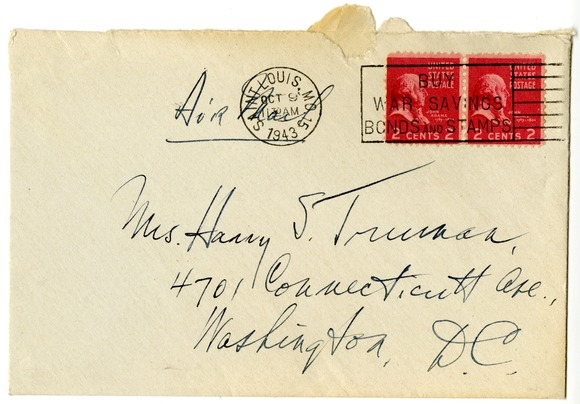 SAINT LOUIS, MO. 15
OCT 9
11 30 AM
1943
BUY
WAR SAVINGS
BONDS AND STAMPS
UNITED STATES POSTAGE
JOHN ADAMS
2 CENTS 2
UNITED STATES POSTAGE
2 CENTS 2
Air Mail
Mrs. Harry S. Truman,
4701 Connecticutt Ave.,
Washington, D.C.